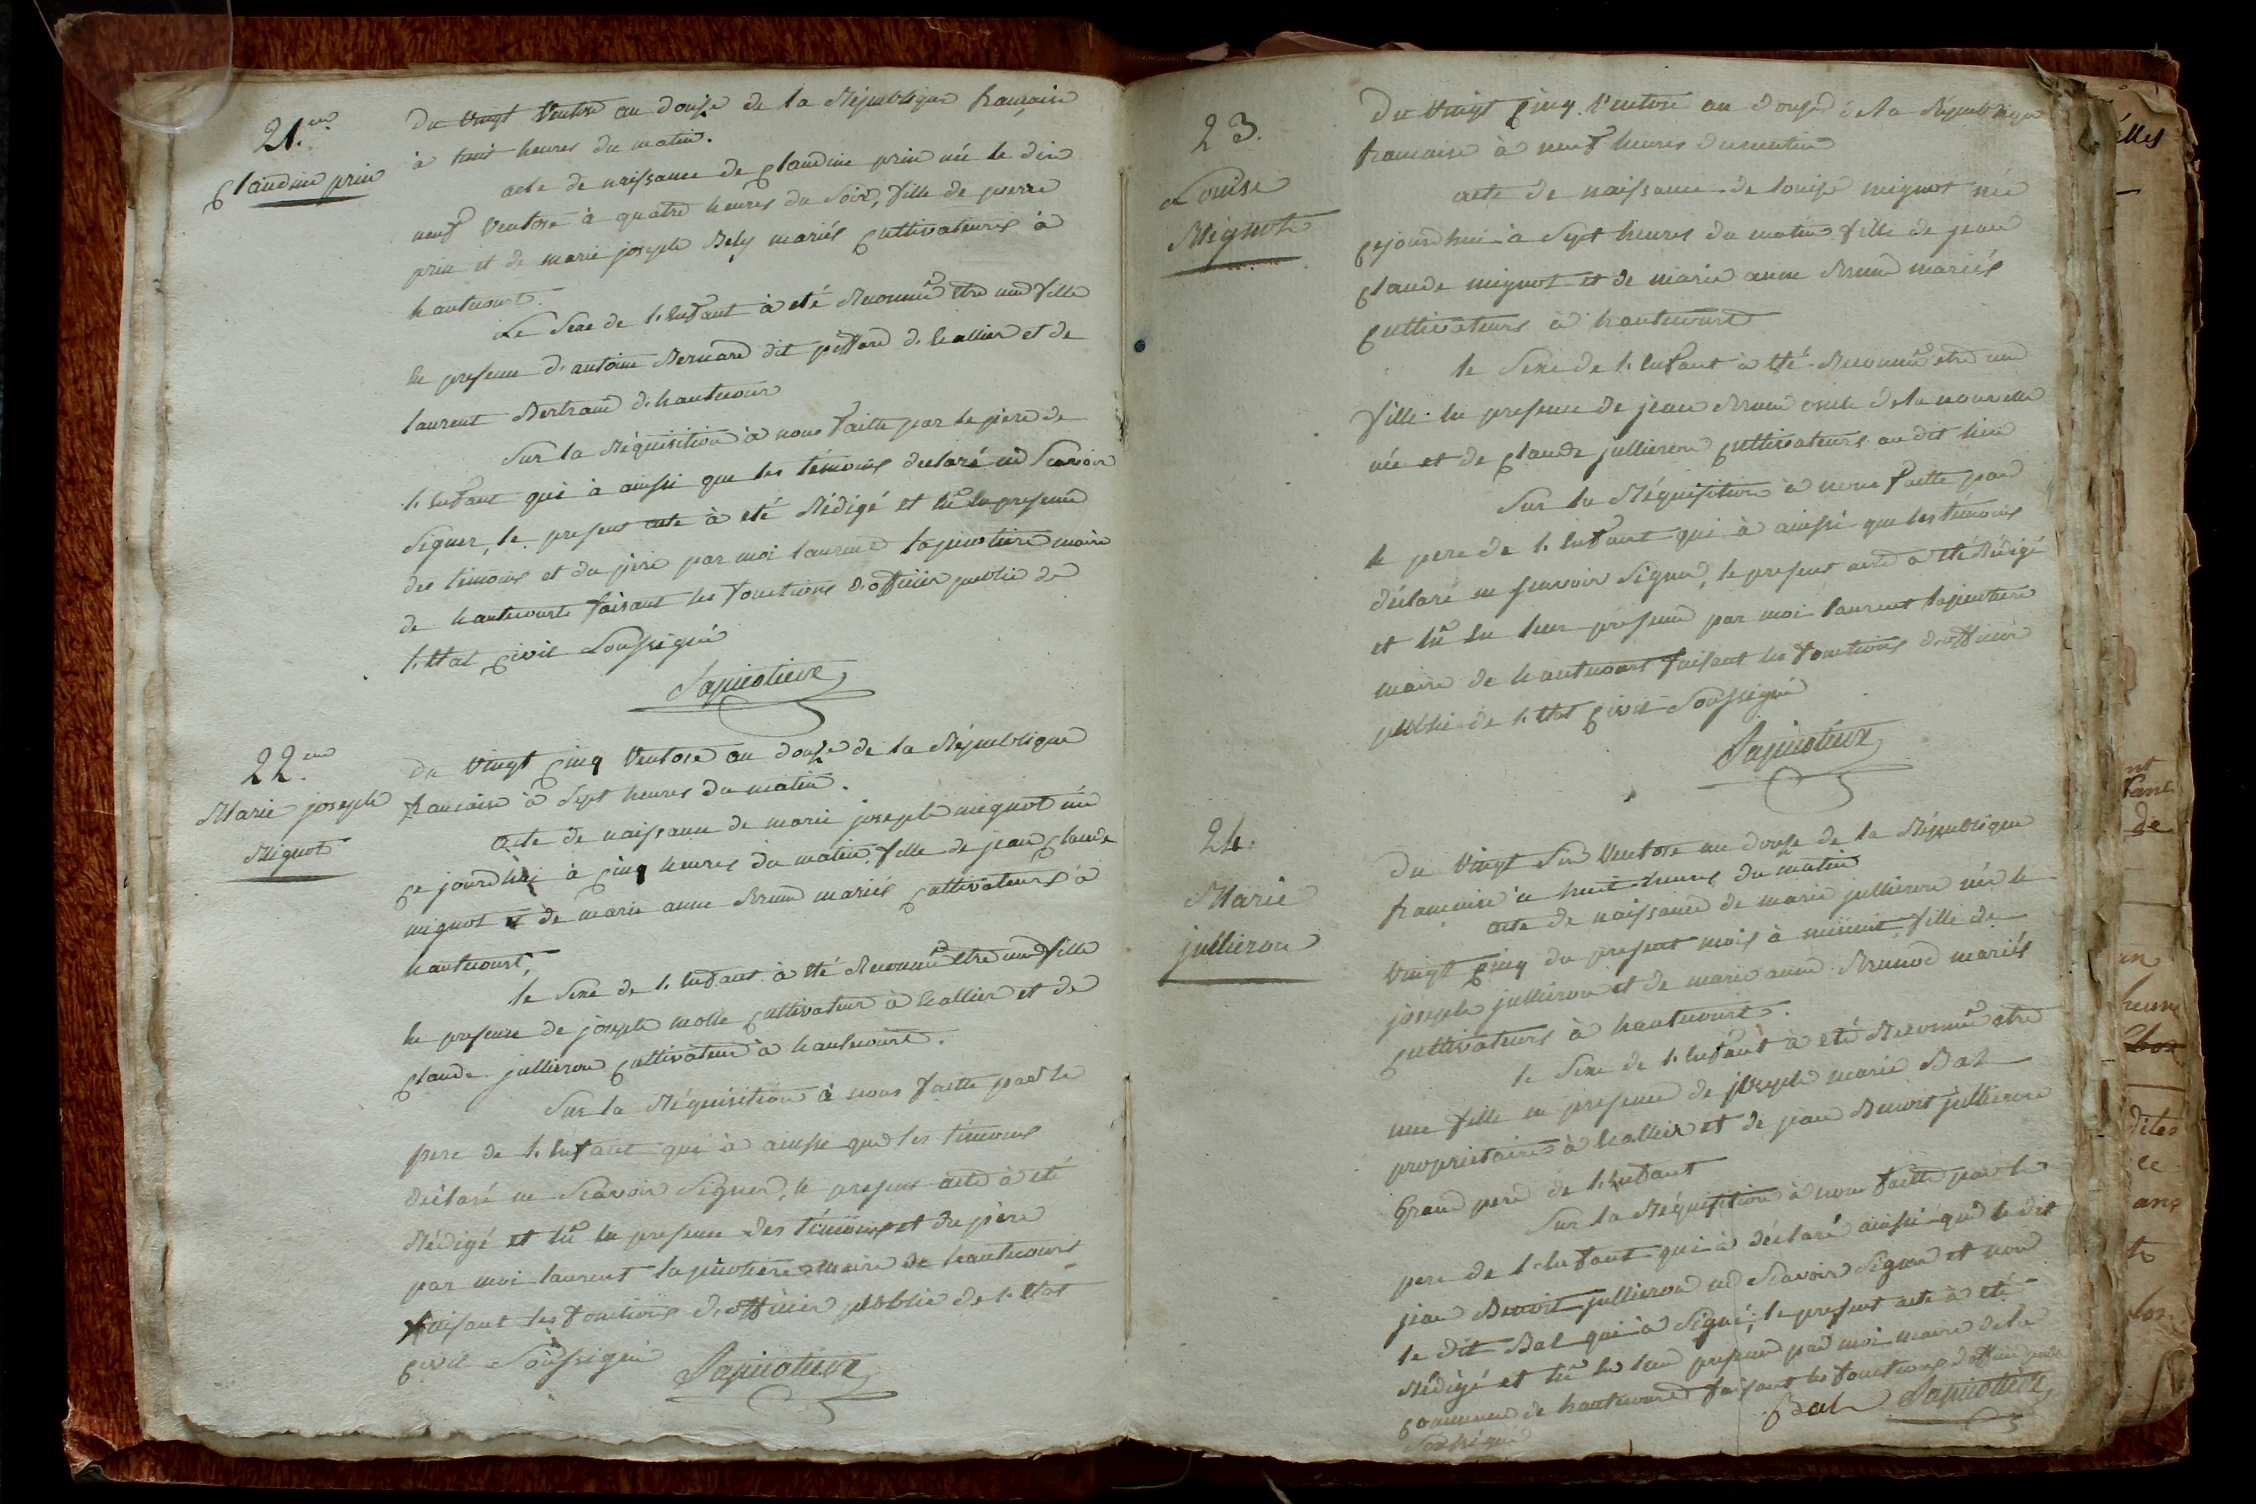 21.me
Claudine prin
Du Vingt Ventose an douze de la République francaise
à huit heures du matin.
acte de naissance de Claudine prin née le dix
neuf Ventose à quatre heures du Soir, fille de pierre
prin et de marie joseph Bely mariés Cultivateurs à
hautecourt.
Le Sexe de l'Enfant à eté Reconnû etre une fille
En presence d'antoine Bernard dit d'hallier et de
laurent Bertrand d'hautecour
Sur la Réquisition à nous faitte par le père de
l'Enfant qui à ainssi que les témoins declaré ne Scavoir
Signer, le present acte à eté Rédigé et lû En presence
des témoins et du père par moi laurent lapicotiere maire
de hautecourt faisant les fonctions d'officier public de
l'Etat Civil Soussigné
Lapicotiere
22.me
Marie joseph
Mignot
Du Vingt Cinq Ventose an douze de la République
francaise à Sept heures du matin.
Acte de naissance de marie joseph mignot née
Ce jourdhui à Cinq heures du matin, fille de jean Claude
mignot et de marie anne Brunod mariés Cultivateurs à
hautecourt,
le Sexe de l'Enfant à eté Reconnû etre une fille
En presence de joseph molle Cultivateur à hallier et de
Claude jullieron Cultivateur à hautecourt.
Sur la Réquisition à nous faitte par le
pere de l'Enfant qui à ainssi que les témoins
déclaré ne Scavoir Signer, le present acte à eté
Rédigé et lû En presence des témoins et du père
par moi laurent lapicotiere maire de hautecourt
faisant les fonctions d'officier public de l'Etat
Civil Soussigné
Lapicotiere
23.
Louise
Mignot
Du Vingt Cinq Ventose an douze de la République
francaise à neuf heures du matin
acte de naissance de louise mignot née
Cejourdhui à Sept heures du matin fille de jean
Claude mignot et de marie anne Brunod mariés
Cultivateurs à hautecourt
le Sexe de l'Enfant à eté Reconnû etre une
fille En presence de jean Brunod oncle de la nouvelle
née et de Claude jullieron Cultivateurs au dit lieu
Sur la Réquisition à nous faitte par
le pere de l'Enfant qui à ainssi que les témoins
déclaré ne scavoir Signer, le present acte a eté Rédigé
et lû En leur présence par moi laurent lapicotiere
maire de hautecourt faisant les fonctions d'officier
public de l'Etat Civil Soussigné
Lapicotiere
24.
Marie
jullieron
Du Vingt Six Ventose an douze de la République
francaise à huit heures du matin
acte de naissance de marie jullieron née le
Vingt Cinq du present mois à minuit, fille de
joseph jullieron et de marie anne Brunod mariés
Cultivateurs à hautecourt.
le Sexe de l'Enfant à eté Reconnû etre
une fille en presence de joseph marie Bal
proprietaire à hallier et de jean Benoit jullieron
Grand pere de l'Enfant
Sur la Réquisition à nous faitte par le
pere de l'Enfant qui à déclaré ainssi que le dit
jean Benoit jullieron ne Scavoir Signer et non
le dit Bal qui à Signé, le present acte à eté
Rédigé et lû En leur presence par moi maire de la
Commune de hautecourt faisant les fonctions d'officier public
Soussigné
Bal Lapicotiere
elles
nt
fant
de
un
heure
dites
ce
ans